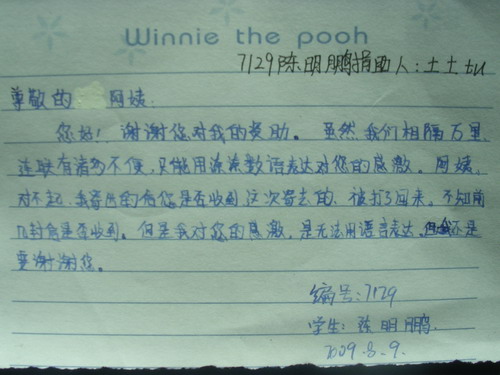 Winnie the pooh
7129陈明鹏捐助人:土土tu
尊敬的 阿姨:
您好!谢谢您对我的资助。虽然我们相隔万里,
连联有诸多不便,只能用寥寥数语表达对您的感激。阿姨,
对不起,我寄出的信您是否收到这次寄去的,被打了回来。不知前
几封信是否收到。但是我对您的感激,是无法用语音表达,但我还是
要谢谢您。
编号:7129
学生:陈明鹏.
2009.8.9.